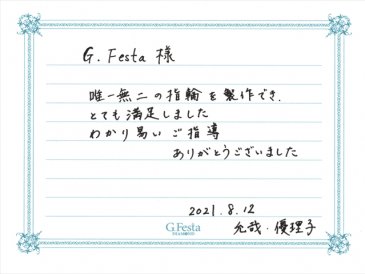 G. Festa 様
唯一無二の指輪を製作でき、
とても満足しました
わかり易いご指導
ありがとうございました
2021.8.12
允哉・優理子
G.Festa